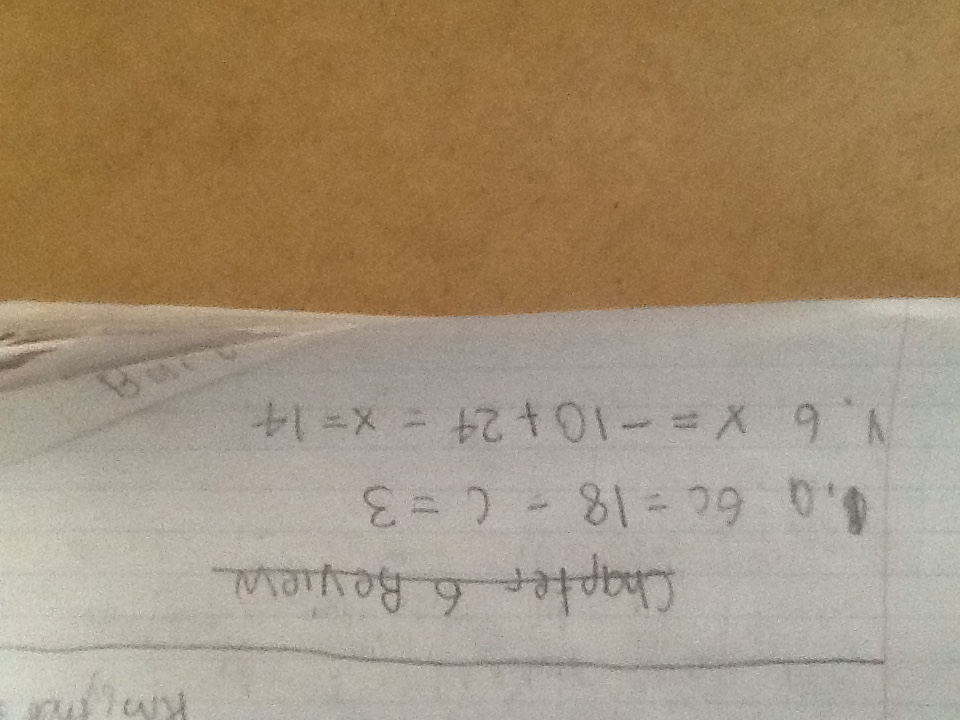 Chapter 6 Review
1. a 6c = 18 = c = 3
1. b x = -10 + 24 = x = 14